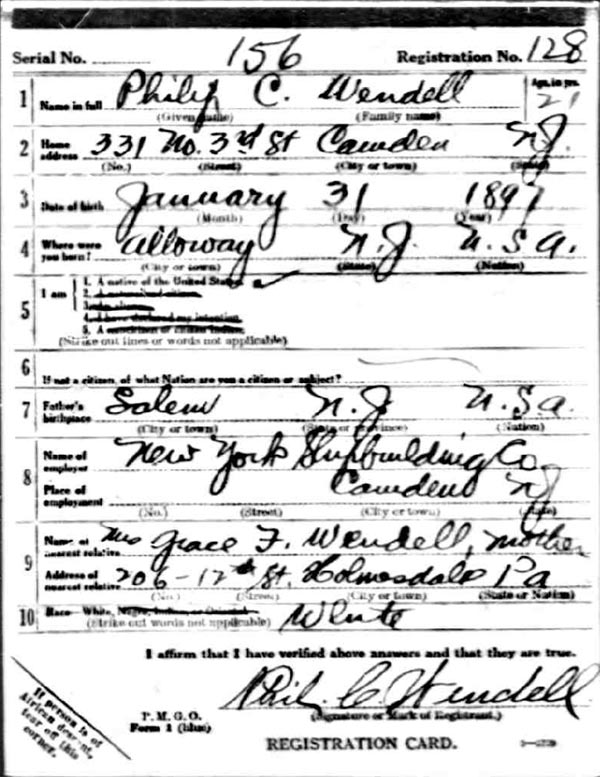 Serial No. 156 Registration No. 128
1 Name in full Philip C. Wendell Age, in yrs. 21
(Given name) (Family name)
2 Home address 331 No. 3rd St Camden N.J.
(No.) (Street) (City or town) (State)
3 Date of birth January 31 1897
(Month) (Day) (Year)
4 Where were you born? Alloway N.J. U.S.A.
(City or town) (State) (Nation)
5 I am
1. A native of the United States ✓
2. A naturalized citizen
3. An alien
4. I have declared my intention
5. A
(Strike out lines or words not applicable)
6
If not a citizen, of what Nation are you a citizen or subject?
7 Father's birthplace Salem N.J. U.S.A.
(City or town) (State or province) (Nation)
8 Name of employer New York Shipbuilding Co
Place of employment Camden NJ
(No.) (Street) (City or town) (State)
9 Name of nearest relative Mrs Grace F. Wendell, mother
Address of nearest relative 206-12th St. Holmesdale Pa
(No.) (Street) (City or town) (State or Nation)
10 Race—White, Negro, Indian, or Oriental White
(Strike out words not applicable)
I affirm that I have verified above answers and that they are true.
Philip C Wendell
(Signature or Mark of Registrant.)
P. M. G. O.
Form 1 (blue)
REGISTRATION CARD.
If person is of
African descent,
tear off this
corner.